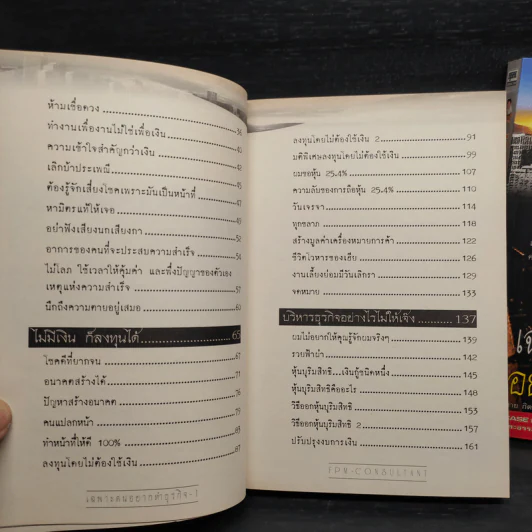 ห้ามเชื่อดวง
ทำงานเพื่องานไม่ใช่เพื่อเงิน 38
ความเข้าใจสำคัญกว่าเงิน 40
เลิกบ้าประเพณี 43
ต้องรู้จักเสี่ยงโชคเพราะมันเป็นหน้าที่ 45
หามิตรแท้ให้เจอ 47
อย่าฟังเสียงนกเสียงกา 49
อาการของคนที่จะประสบความสำเร็จ 52
ไม่โลภ ใช้เวลาให้คุ้มค่า และพึ่งปัญญาของตัวเอง 54
เหตุแห่งความสำเร็จ 57
นึกถึงความตายอยู่เสมอ 60
ไม่มีเงิน ก็ลงทุนได้ 65
โชคดีที่ยากจน 67
อนาคตสร้างได้ 71
ปัญหาสร้างอนาคต 76
คนแปลกหน้า 79
ทำหน้าที่ให้ดี 100% 83
ลงทุนโดยไม่ต้องใช้เงิน 87
เฉพาะคนอยากทำธุรกิจ-1
ลงทุนโดยไม่ต้องใช้เงิน 2 91
มติพิเศษลงทุนโดยไม่ต้องใช้เงิน 99
ยมขอหุ้น 25.4% 107
ความลับของการถือหุ้น 25.4% 110
วันเจรจา 114
ทุกขลาภ 118
สร้างมูลค่าเครื่องหมายการค้า 122
ชีวิตไวหารของเฮีย 126
งานเลี้ยงย่อมมีวันเลิกรา 129
จดหมาย 133
บริหารธุรกิจอย่างไรไม่ให้เจ๊ง 137
ยมไม่อยากให้คุณรู้จักยมจริงๆ 139
รวยฟ้าผ่า 142
หุ้นบุริมสิทธิ...เงินกู้ชนิดหนึ่ง 145
หุ้นบุริมสิทธิคืออะไร 148
วิธีออกหุ้นบุริมสิทธิ 153
วิธีออกหุ้นบุริมสิทธิ 2 157
ปรับปรุงงบการเงิน 161
TPN-CONSULTANT